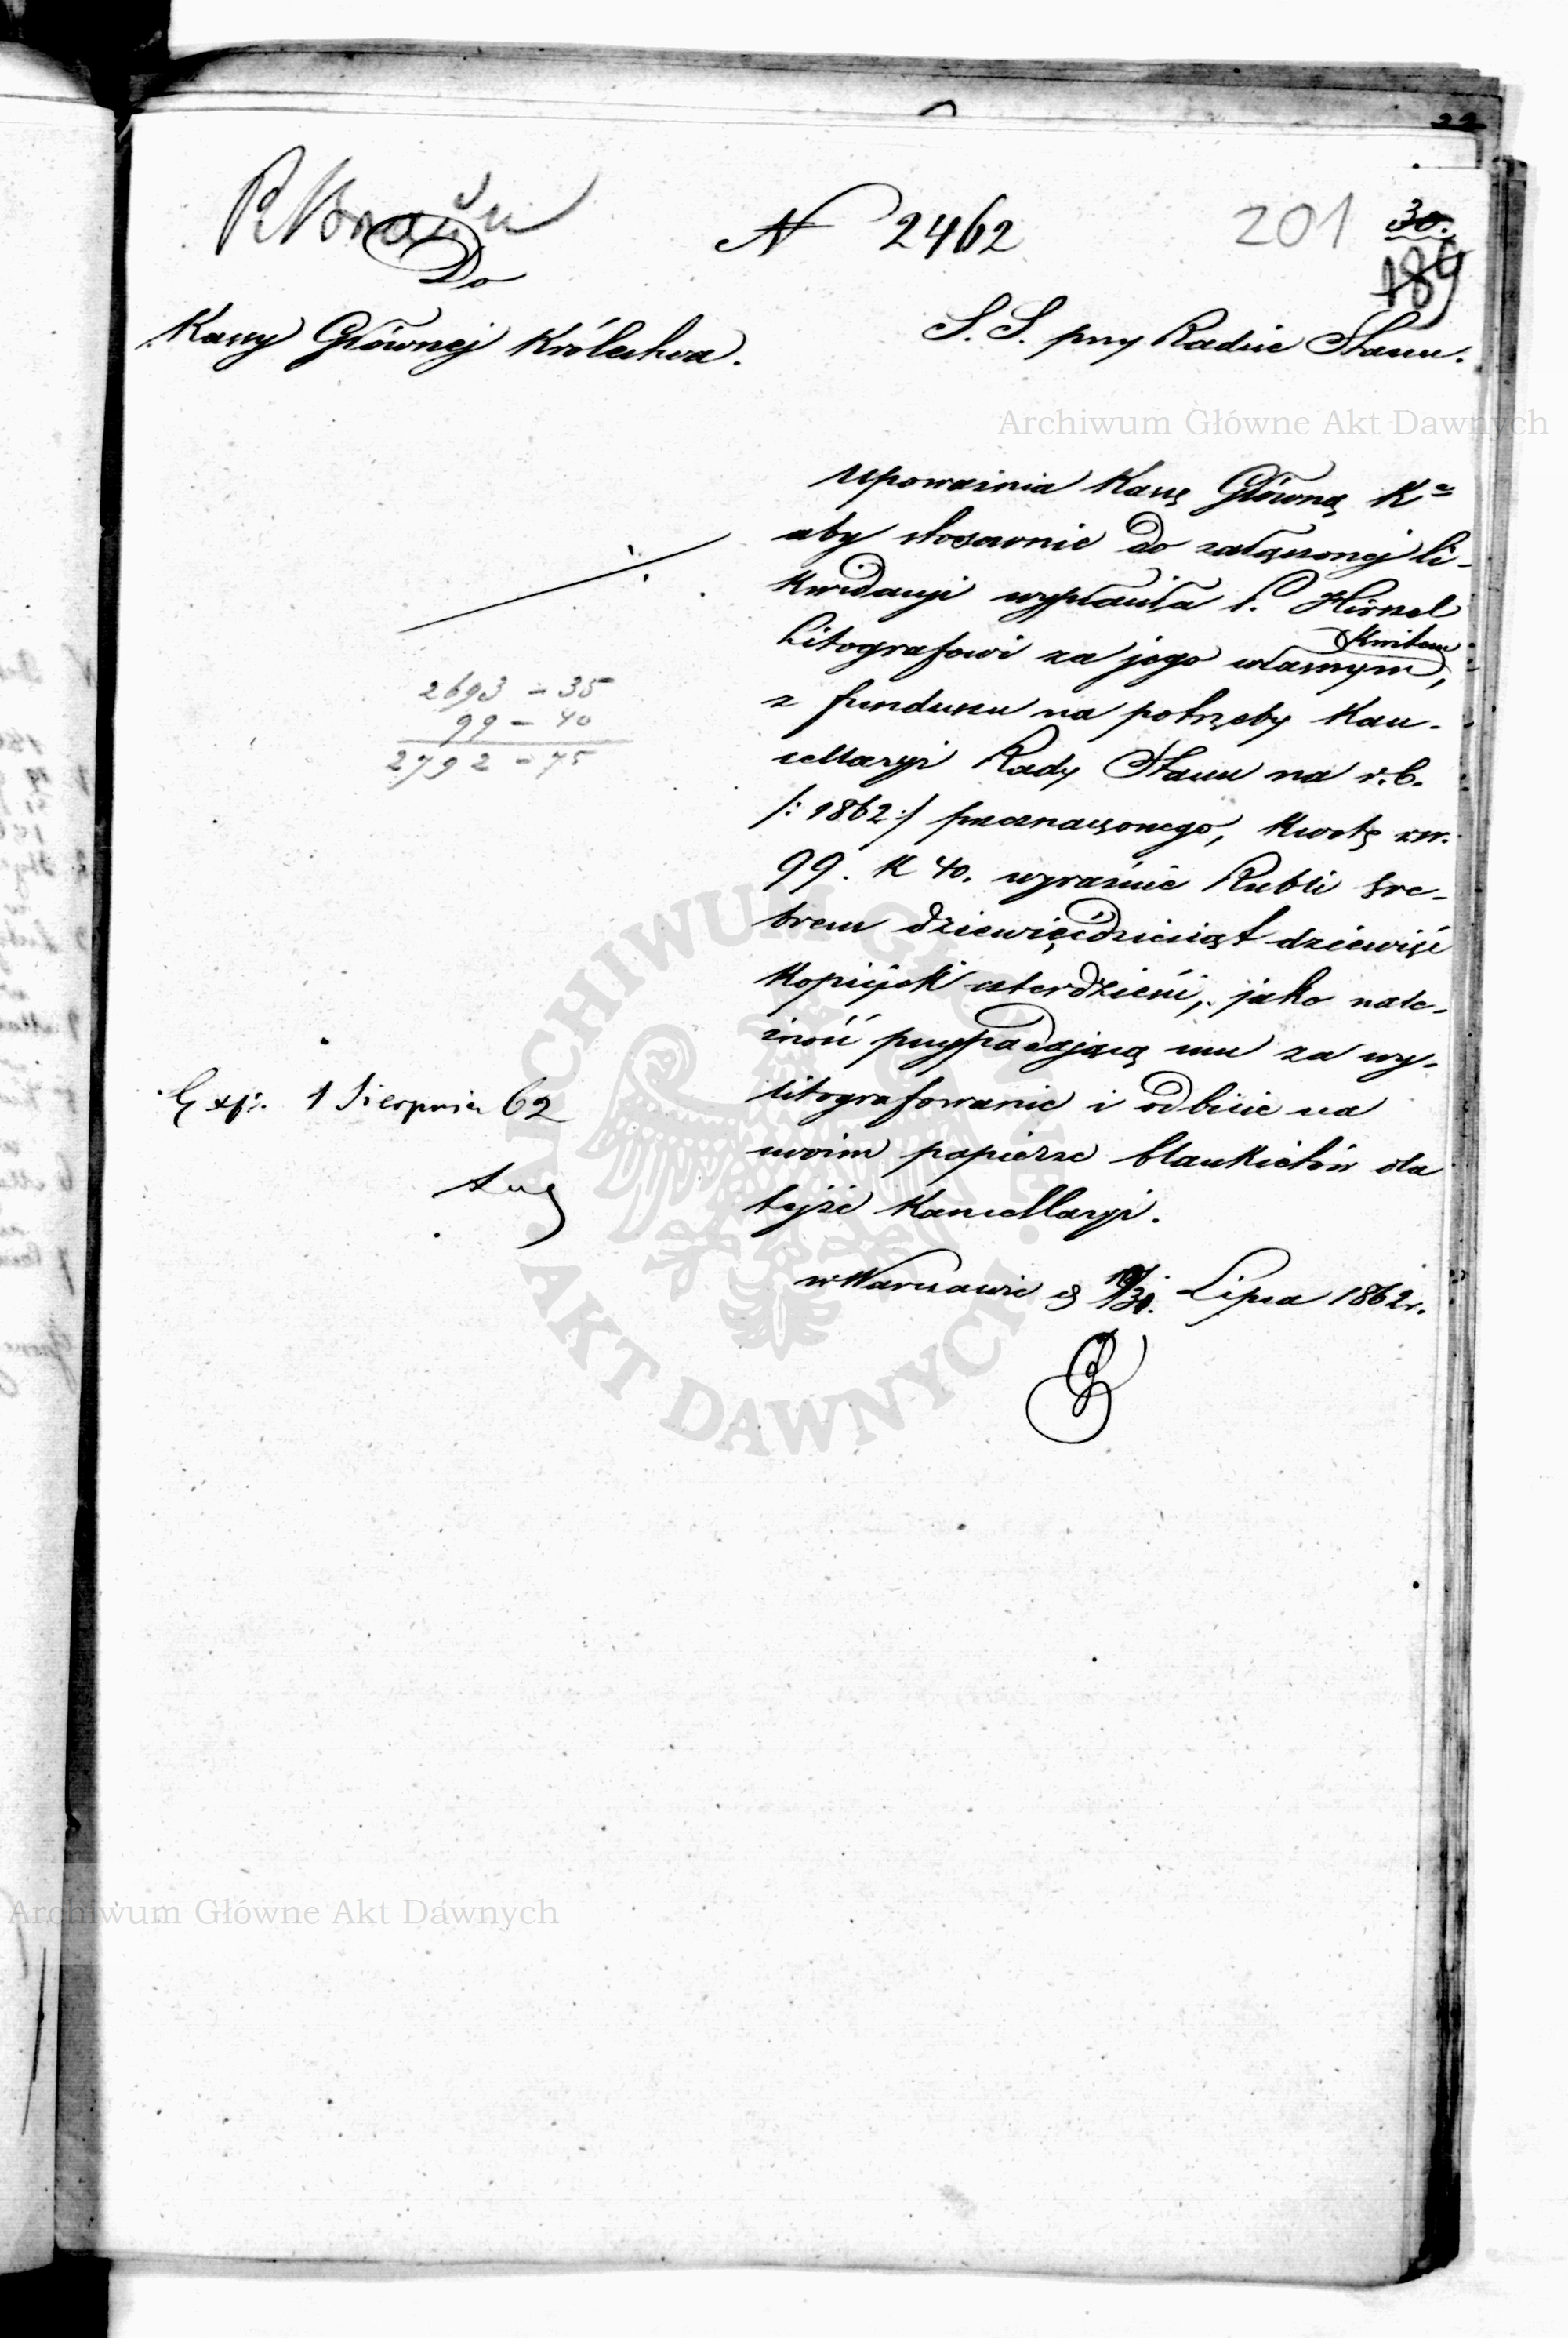 22
201
30.
189
N 2462
Do
Kassy Głównej Królestwa.
S. S. przy Radzie Stanu.
Archiwum Główne Akt Dawnych
Upoważnia Kassę Główną K
aby stosownie do załączonej li-
kwidacyi wypłaciła P. Hirszel
Litografowi za jego własnym Kwitem,
z funduszu na potrzeby Kan-
cellaryi Rady Stanu na r.b.
/: 1862 :/ przeznaczonego, kwotę rsr.
99. K 40. wyraźnie Rubli sre-
brem dziewięćdziesiąt dziewięć
kopiejek czterdzieści, jako nale-
żność przypadającą mu za wy-
litografowanie i odbicie na
swoim papierze blankietów dla
tejże Kancellaryi.
w Warszawie d Lipca 1862 r.
2693 - 35
99 - 40
2792 - 75
Exp. 1 Sierpnia 62
ARCHIWUM GŁÓWNE
AKT DAWNYCH
Archiwum Główne Akt Dawnych